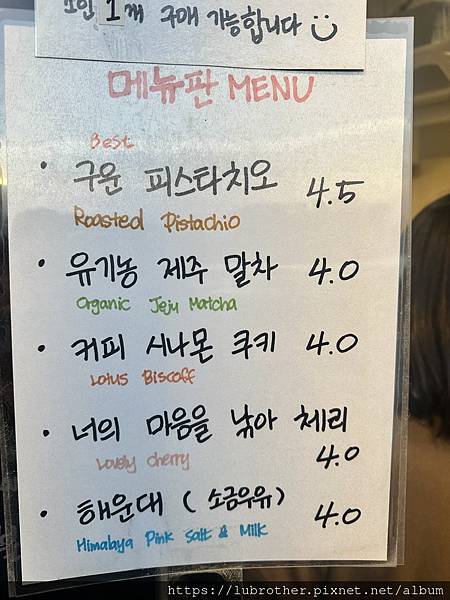 1인 1개 구매 가능합니다
메뉴판 MENU
Best
• 구운 피스타치오 4.5
Roasted Pistachio
• 유기농 제주 말차 4.0
Organic Jeju Matcha
• 커피 시나몬 쿠키 4.0
Lotus Biscoff
• 너의 마음을 낚아 체리
Lovely Cherry 4.0
• 해운대 (소금우유) 4.0
Himalaya Pink Salt & Milk
https://lubrother.pixnet.net/album